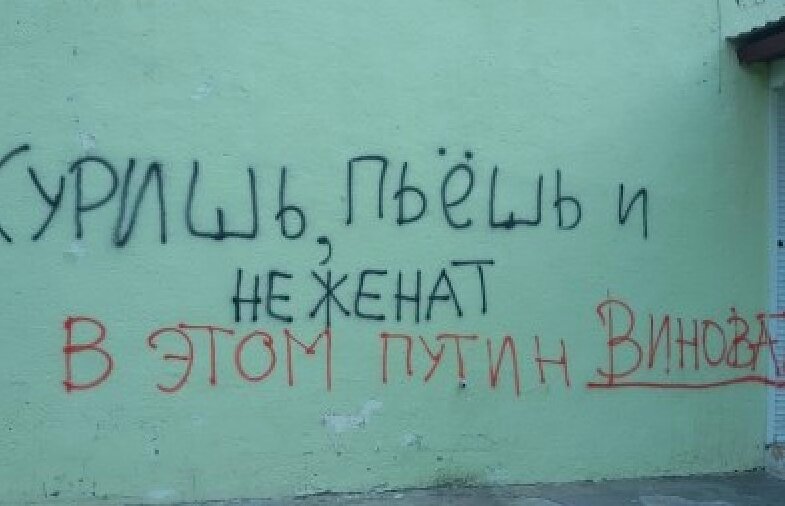 КУРИШЬ, ПЬЁШЬ И
НЕ ЖЕНАТ
В ЭТОМ ПУТИН ВИНОВА